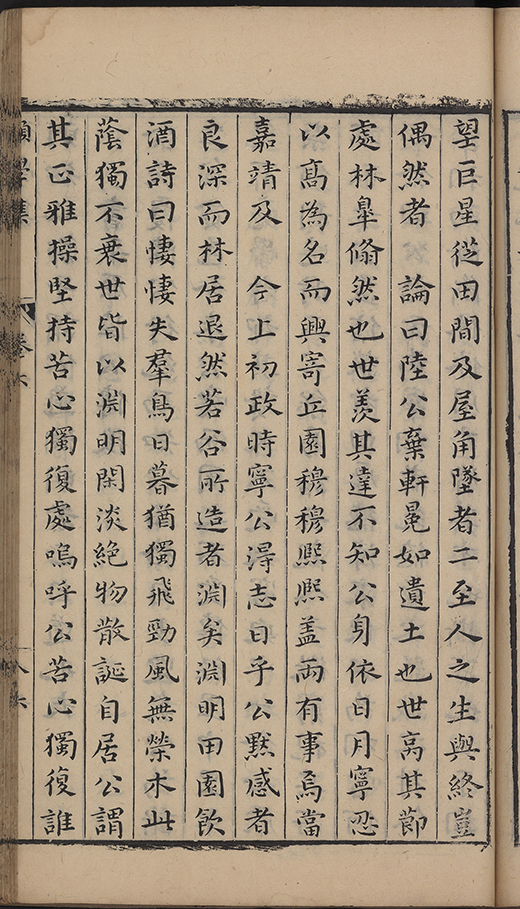 望巨星從田間及屋角墜者二至人之生與終豈
偶然者　論曰陸公棄軒冕如遺土也世高其節
處林臯翛然也世羨其達不知公身依日月寧忍
以髙為名而興寄丘園穆穆熈熈盖兩有事焉當
嘉靖及　今上初政時寧公淂志日乎公黙感者
良深而林居退然若谷所造者淵矣淵明田園飲
酒詩曰悽悽失羣鳥日暮猶獨飛勁風無榮木此
蔭獨不衰世皆以淵明閑淡絶物散誕自居公謂
其正雅操堅持苦心獨復處嗚呼公苦心獨復誰
卷六